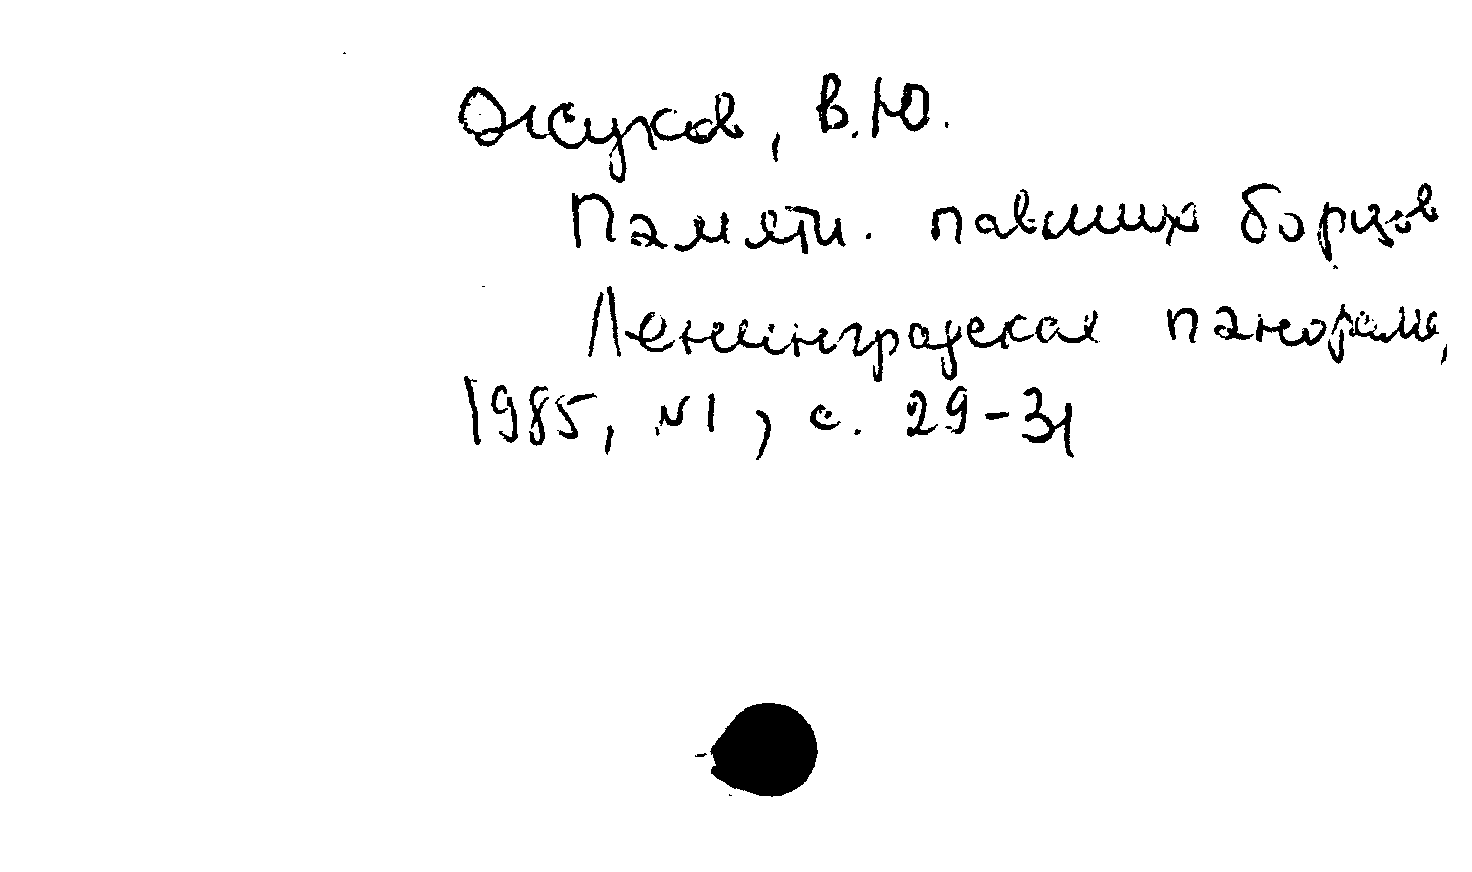 Жуков, В.Ю.
Памяти павших борцов
Ленинградская панорама,
1985, №1, с. 29-31